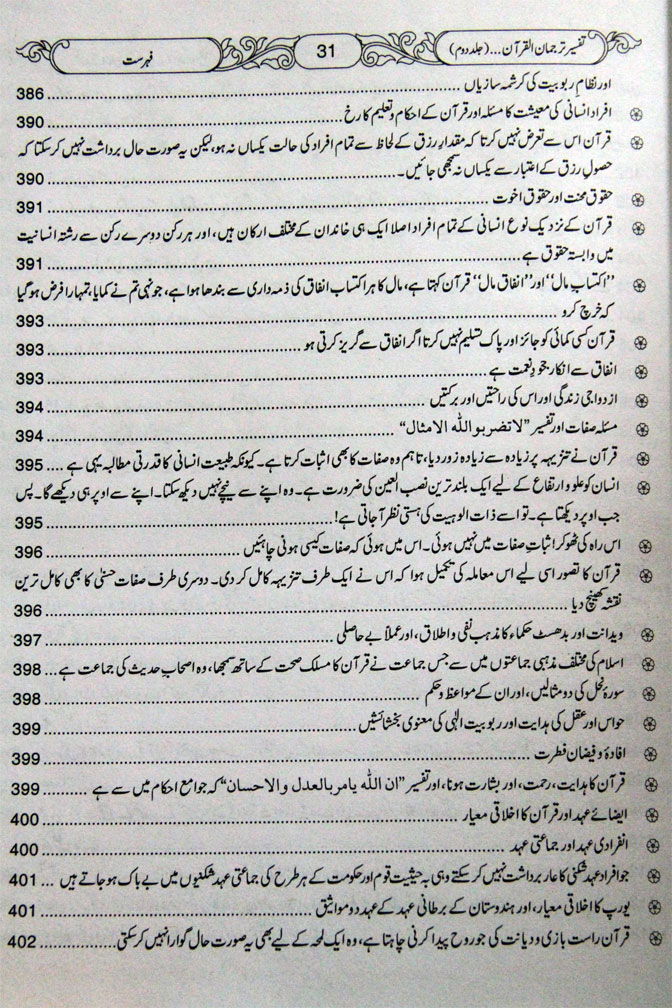 تفسیر ترجمان القرآن...(جلد دوم) 31 فہرست
اور نظامِ ربوبیت کی کرشمہ سازیاں ........ 386
افراد انسانی کی معیشت کا مسئلہ اور قرآن کے احکام و تعلیم کا رخ ........ 390
قرآن اس سے تعرض نہیں کرتا کہ مقدارِ رزق کے لحاظ سے تمام افراد کی حالت یکساں نہ ہو، لیکن یہ صورت حال برداشت نہیں کر سکتا کہ
حصولِ رزق کے اعتبار سے یکساں نہ سمجھی جائیں۔ ........ 390
حقوق محنت اور حقوق اخوت ........ 391
قرآن کے نزدیک نوع انسانی کے تمام افراد اصلا ایک ہی خاندان کے مختلف ارکان ہیں، اور ہر رکن دوسرے رکن سے رشتہ انسانیت
میں وابستہ حقوق ہے ........ 391
’’اکتساب مال‘‘ اور ’’انفاق مال‘‘ قرآن کہتا ہے، مال کا ہر اکتساب انفاق کی ذمہ داری سے بندھا ہوا ہے، جونہی تم نے کمایا، تمہارا فرض ہو گیا
کہ خرچ کرو ........ 393
قرآن کسی کمائی کو جائز اور پاک تسلیم نہیں کرتا اگر انفاق سے گریز کرتی ہو ........ 393
انفاق سے انکار جحودِ نعمت ہے ........ 393
ازدواجی زندگی اور اس کی راحتیں اور برکتیں ........ 394
مسئلہ صفات اور تفسیر ”لا تضربو اللہ الامثال“ ........ 394
قرآن نے تنزیہہ پر زیادہ سے زیادہ زور دیا، تاہم وہ صفات کا بھی اثبات کرتا ہے۔ کیونکہ طبیعت انسانی کا قدرتی مطالبہ یہی ہے .... 395
انسان کو علو و ارتفاع کے لیے ایک بلند ترین نصب العین کی ضرورت ہے۔ وہ اپنے سے نیچے نہیں دیکھ سکتا۔ اپنے سے اوپر ہی دیکھے گا۔ پس
جب اوپر دیکھتا ہے۔ تو اسے ذات الوہیت کی ہستی نظر آ جاتی ہے! ........ 395
اس راہ کی ٹھوکر اثباتِ صفات میں نہیں ہوئی۔ اس میں ہوئی کہ صفات کیسی ہونی چاہئیں ........ 396
قرآن کا تصور اسی لیے اس معاملہ کی تکمیل ہوا کہ اس نے ایک طرف تنزیہہ کامل کر دی۔ دوسری طرف صفات حسنیٰ کا بھی کامل ترین
نقشہ کھینچ دیا ........ 396
ویدانت اور بدھسٹ حکماء کا مذہب نفی و اطلاق، اور عملاً بے حاصلی ........ 397
اسلام کی مختلف مذہبی جماعتوں میں سے جس جماعت نے قرآن کا مسلک صحت کے ساتھ سمجھا، وہ اصحابِ حدیث کی جماعت ہے... 398
سورۂ نحل کی دو مثالیں، اور ان کے مواعظ و حکم ........ 398
حواس اور عقل کی ہدایت اور ربوبیت الٰہی کی معنوی بخشائشیں ........ 399
افادۂ و فیضان فطرت ........ 399
قرآن کا ہدایت، رحمت، اور بشارت ہونا، اور تفسیر ”ان اللہ یامر بالعدل والاحسان“ کہ جوامع احکام میں سے ہے ........ 399
ایفائے عہد اور قرآن کا اخلاقی معیار ........ 400
انفرادی عہد اور جماعتی عہد ........ 400
جو افراد عہد شکنی کا عار برداشت نہیں کر سکتے وہی بہ حیثیت قوم اور حکومت کے ہر طرح کی جماعتی عہد شکنیوں میں بے باک ہو جاتے ہیں ... 401
یورپ کا اخلاقی معیار، اور ہندوستان کے برطانی عہد کے عہد دو مواثیق ........ 401
قرآن راست بازی و دیانت کی جو روح پیدا کرنی چاہتا ہے، وہ ایک لمحہ کے لیے بھی یہ صورت حال گوارا نہیں کر سکتی ........ 402